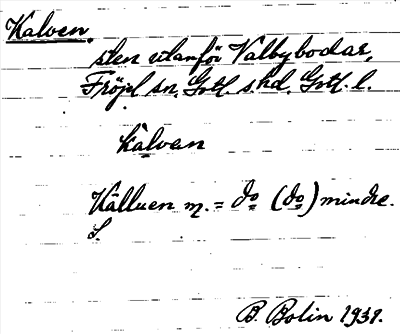 Kalven,
sten utanför Valbybodar,
Fröjel sn. Gotl. s. hd. Gotl. l.
kalven
Källuen m. = do (do) mindre.
S.
B. Bolin 1931.